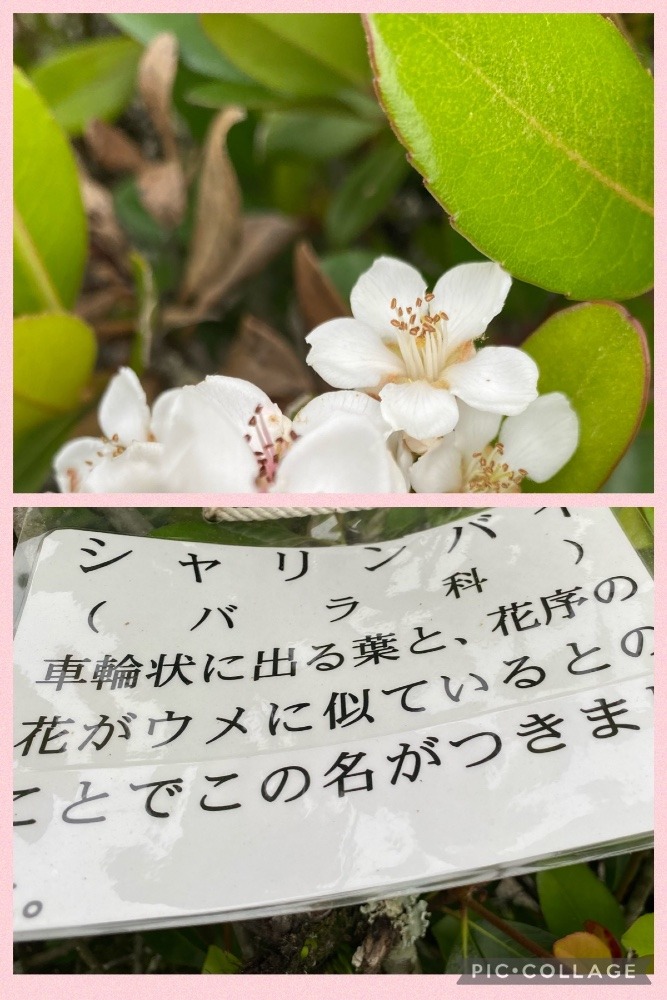 シャリンバイ
(バラ科)
車輪状に出る葉と、花序の
花がウメに似ているとの
ことでこの名がつきま
。
PIC•COLLAGE